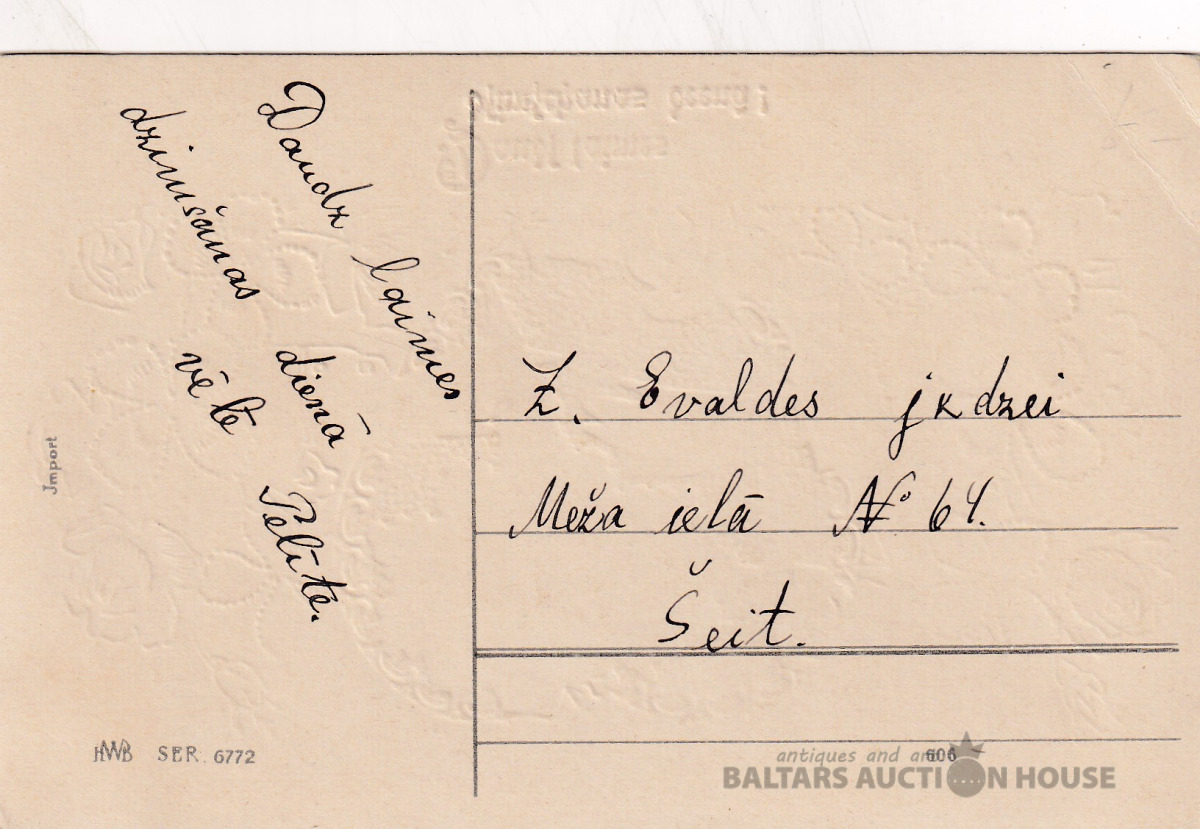 Daudz laimes
dzimšanas dienā
vē lē Pēlītē.
Z. Evaldes jkdzei
Meža ielā № 64.
Šeit.
Import
HWB SER. 6772
606
antiques and art
BALTARS AUCTION HOUSE